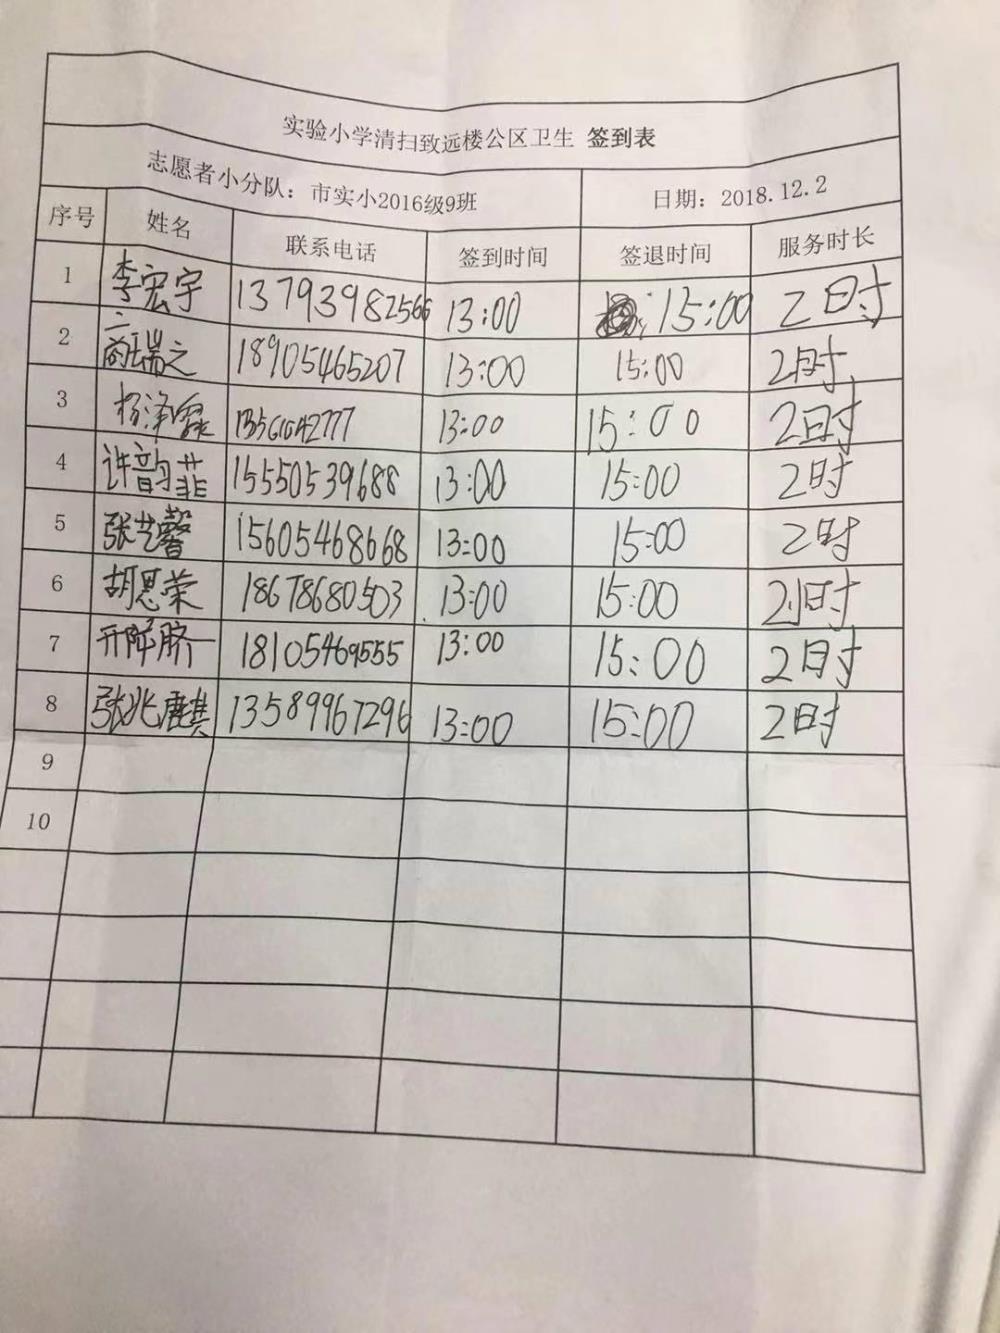 实验小学清扫致远楼公区卫生 签到表
志愿者小分队：市实小2016级9班 日期：2018.12.2
序号 姓名 联系电话 签到时间 签退时间 服务时长
1 李宏宇 13793982566 13:00 15:00 2时
2 瑞之 18905465207 13:00 15:00 2时
3 杨泽 13:00 15:00 2时
4 许韵菲 15550539688 13:00 15:00 2时
5 张艺馨 15605468668 13:00 15:00 2时
6 胡恩荣 18678680503 13:00 15:00 2时
7 18105469555 13:00 15:00 2时
8 张兆麒 13589967296 13:00 15:00 2时
9
10